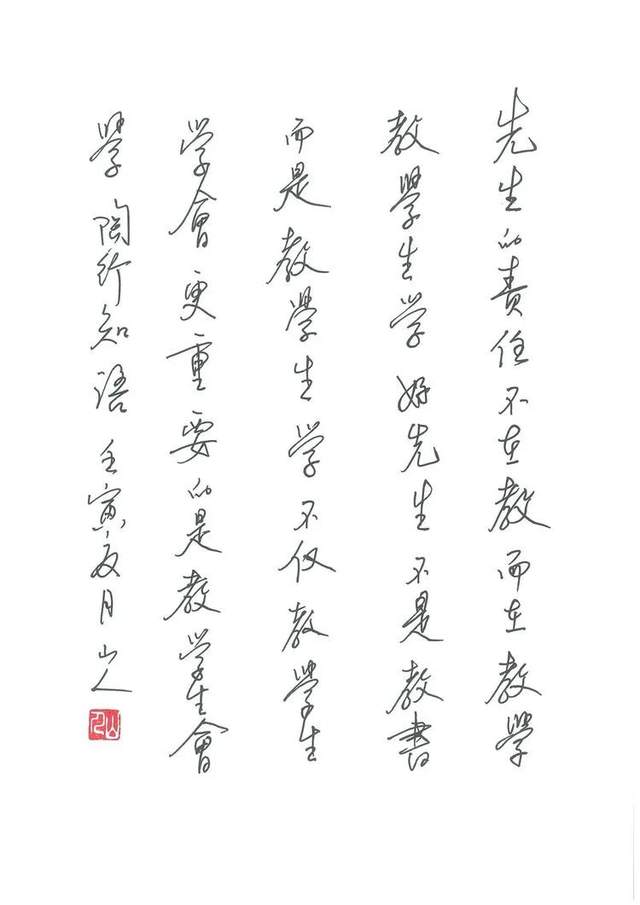 先生的責任不在教而在教學
教學生学好先生不是教書
而是教學生学不仅教學生
学會更重要的是教学生會
學 陶行知語 壬寅夏月 山人
山人